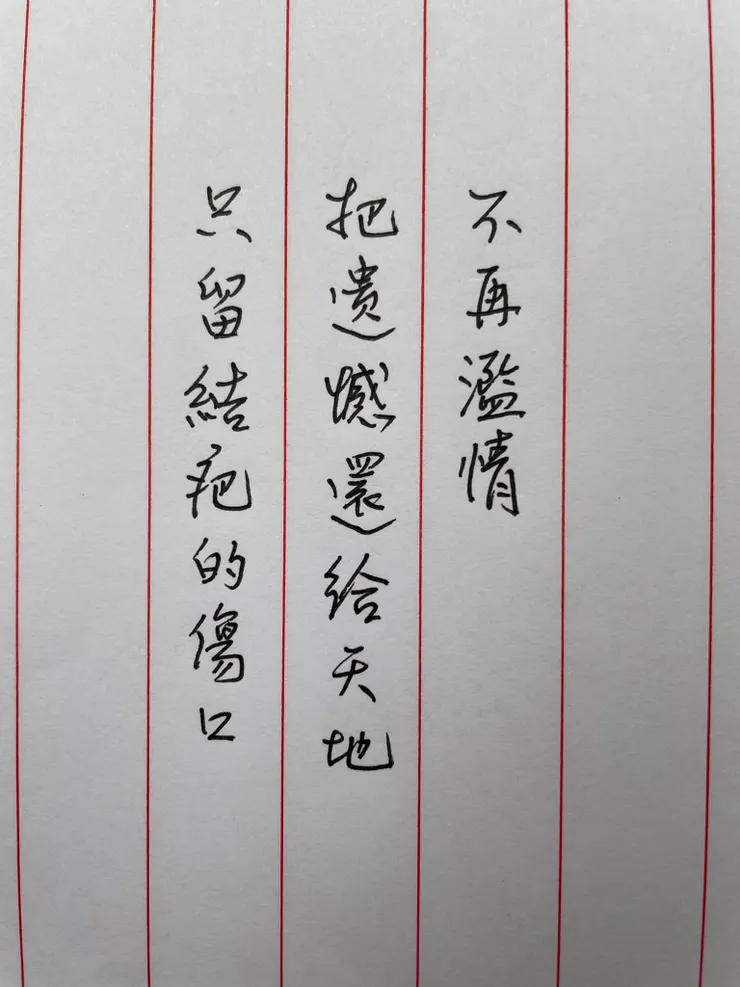 不再濫情
把遺憾還給天地
只留結疤的傷口